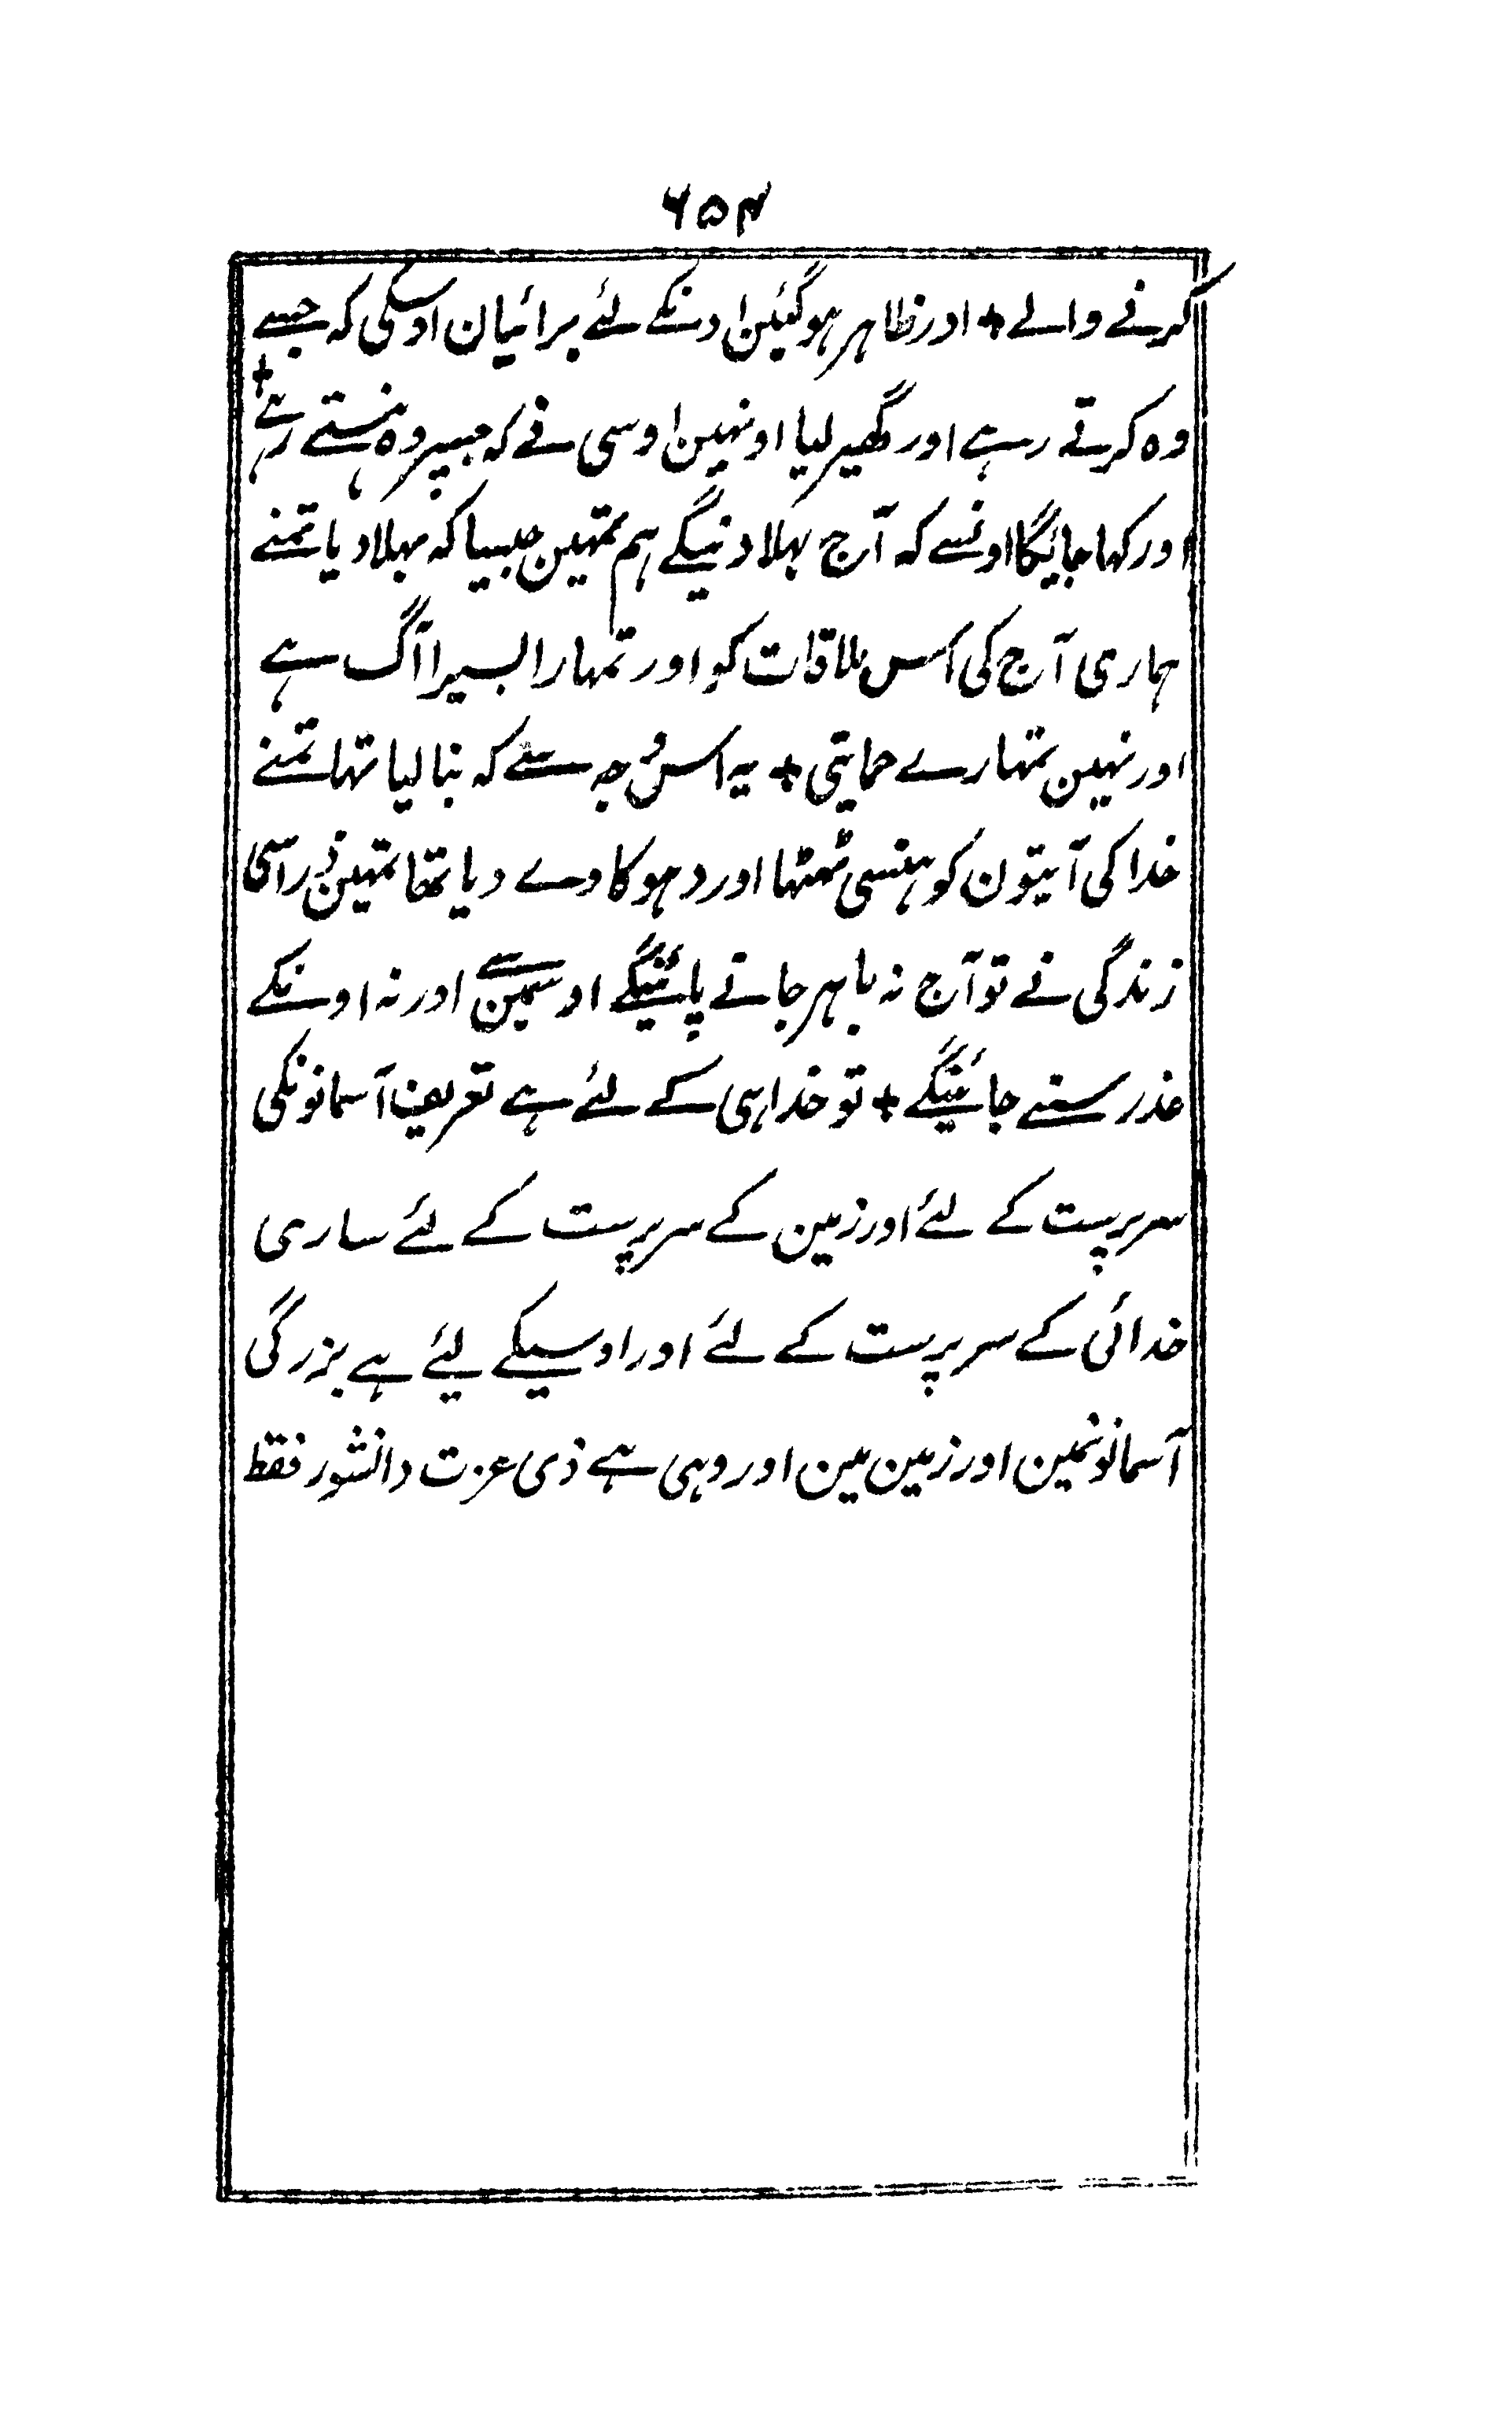 ۶۵۴
کرنے والے + اور ظاہر ہوگئین اونکے لئے برائیان اوسکی کہ جسے
وہ کرتے رہے اور گھیر لیا اونہین اوسی نے کہ جسپر وہ ہنستے رہے +
اور کہا جائیگا اونسے کہ آج بہلا دینگے ہم تمہین جیسا کہ بہلا دیا تمنے
ہماری آج کی اس ملاقات کو اور تمہارا بسیرا آگ ہے
اور نہین تمہارے حمایتی + یہ اس وجہ سے کہ بنا لیا تہا تمنے
خدا کی آیتون کو ہنسی ٹہٹہا اور دہوکا دے دیا تھا تمہین ذرا سی
زندگی نے تو آج نہ باہر جانے پائینگے اوسمین سے اور نہ اونکے
عذر سنے جائینگے + تو خدا ہی کے لئے ہے تعریف آسمانونکی
سرپرست کے لئے اور زمین کے سرپرست کے لئے ساری
خدائی کے سرپرست کے لئے اور اوسیکے لیئے ہے بزرگی
آسمانونمین اور زمین مین اور وہی ہے ذی عزت دانشور فقط